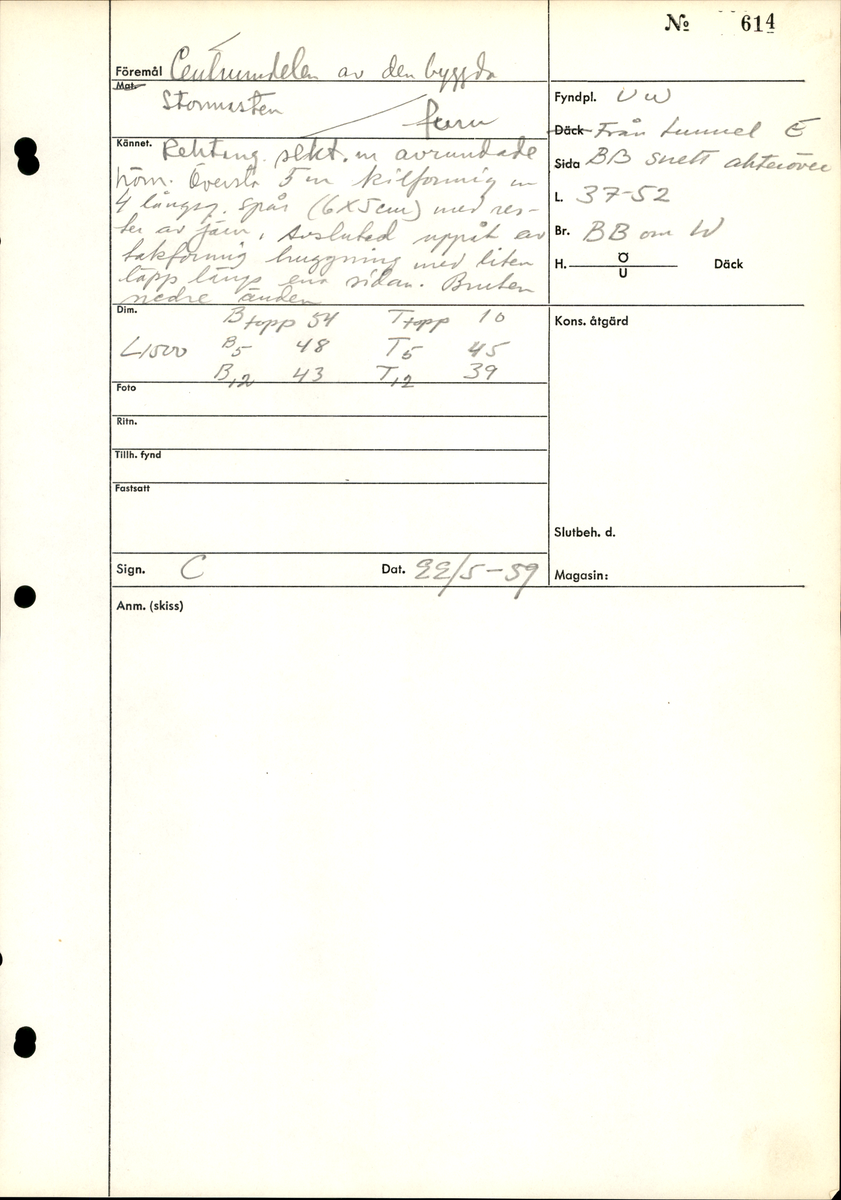 № 614
Föremål Centrumdelen av den byggda
Mat. Stormasten furu
Kännet. Rektang. sekt. m avrundade
hörn. Översta 5 m kilformig m
4 längsg. spår (6x5cm) med res-
ter av järn. Avslutad uppåt av
takformig huggning med liten
läpp längs ena sidan. Bruten
nedre änden
Dim. B topp 54 T topp 10
L 1500 B5 48 T5 45
B12 43 T12 39
Foto
Ritn.
Tillh. fynd
Fastsatt
Sign. C Dat. 22/5-59
Fyndpl. UW
Däck Från tunnel E
Sida BB snett akteröver
L. 37-52
Br. BB om W
H. Ö U Däck
Kons. åtgärd
Slutbeh. d.
Magasin:
Anm. (skiss)